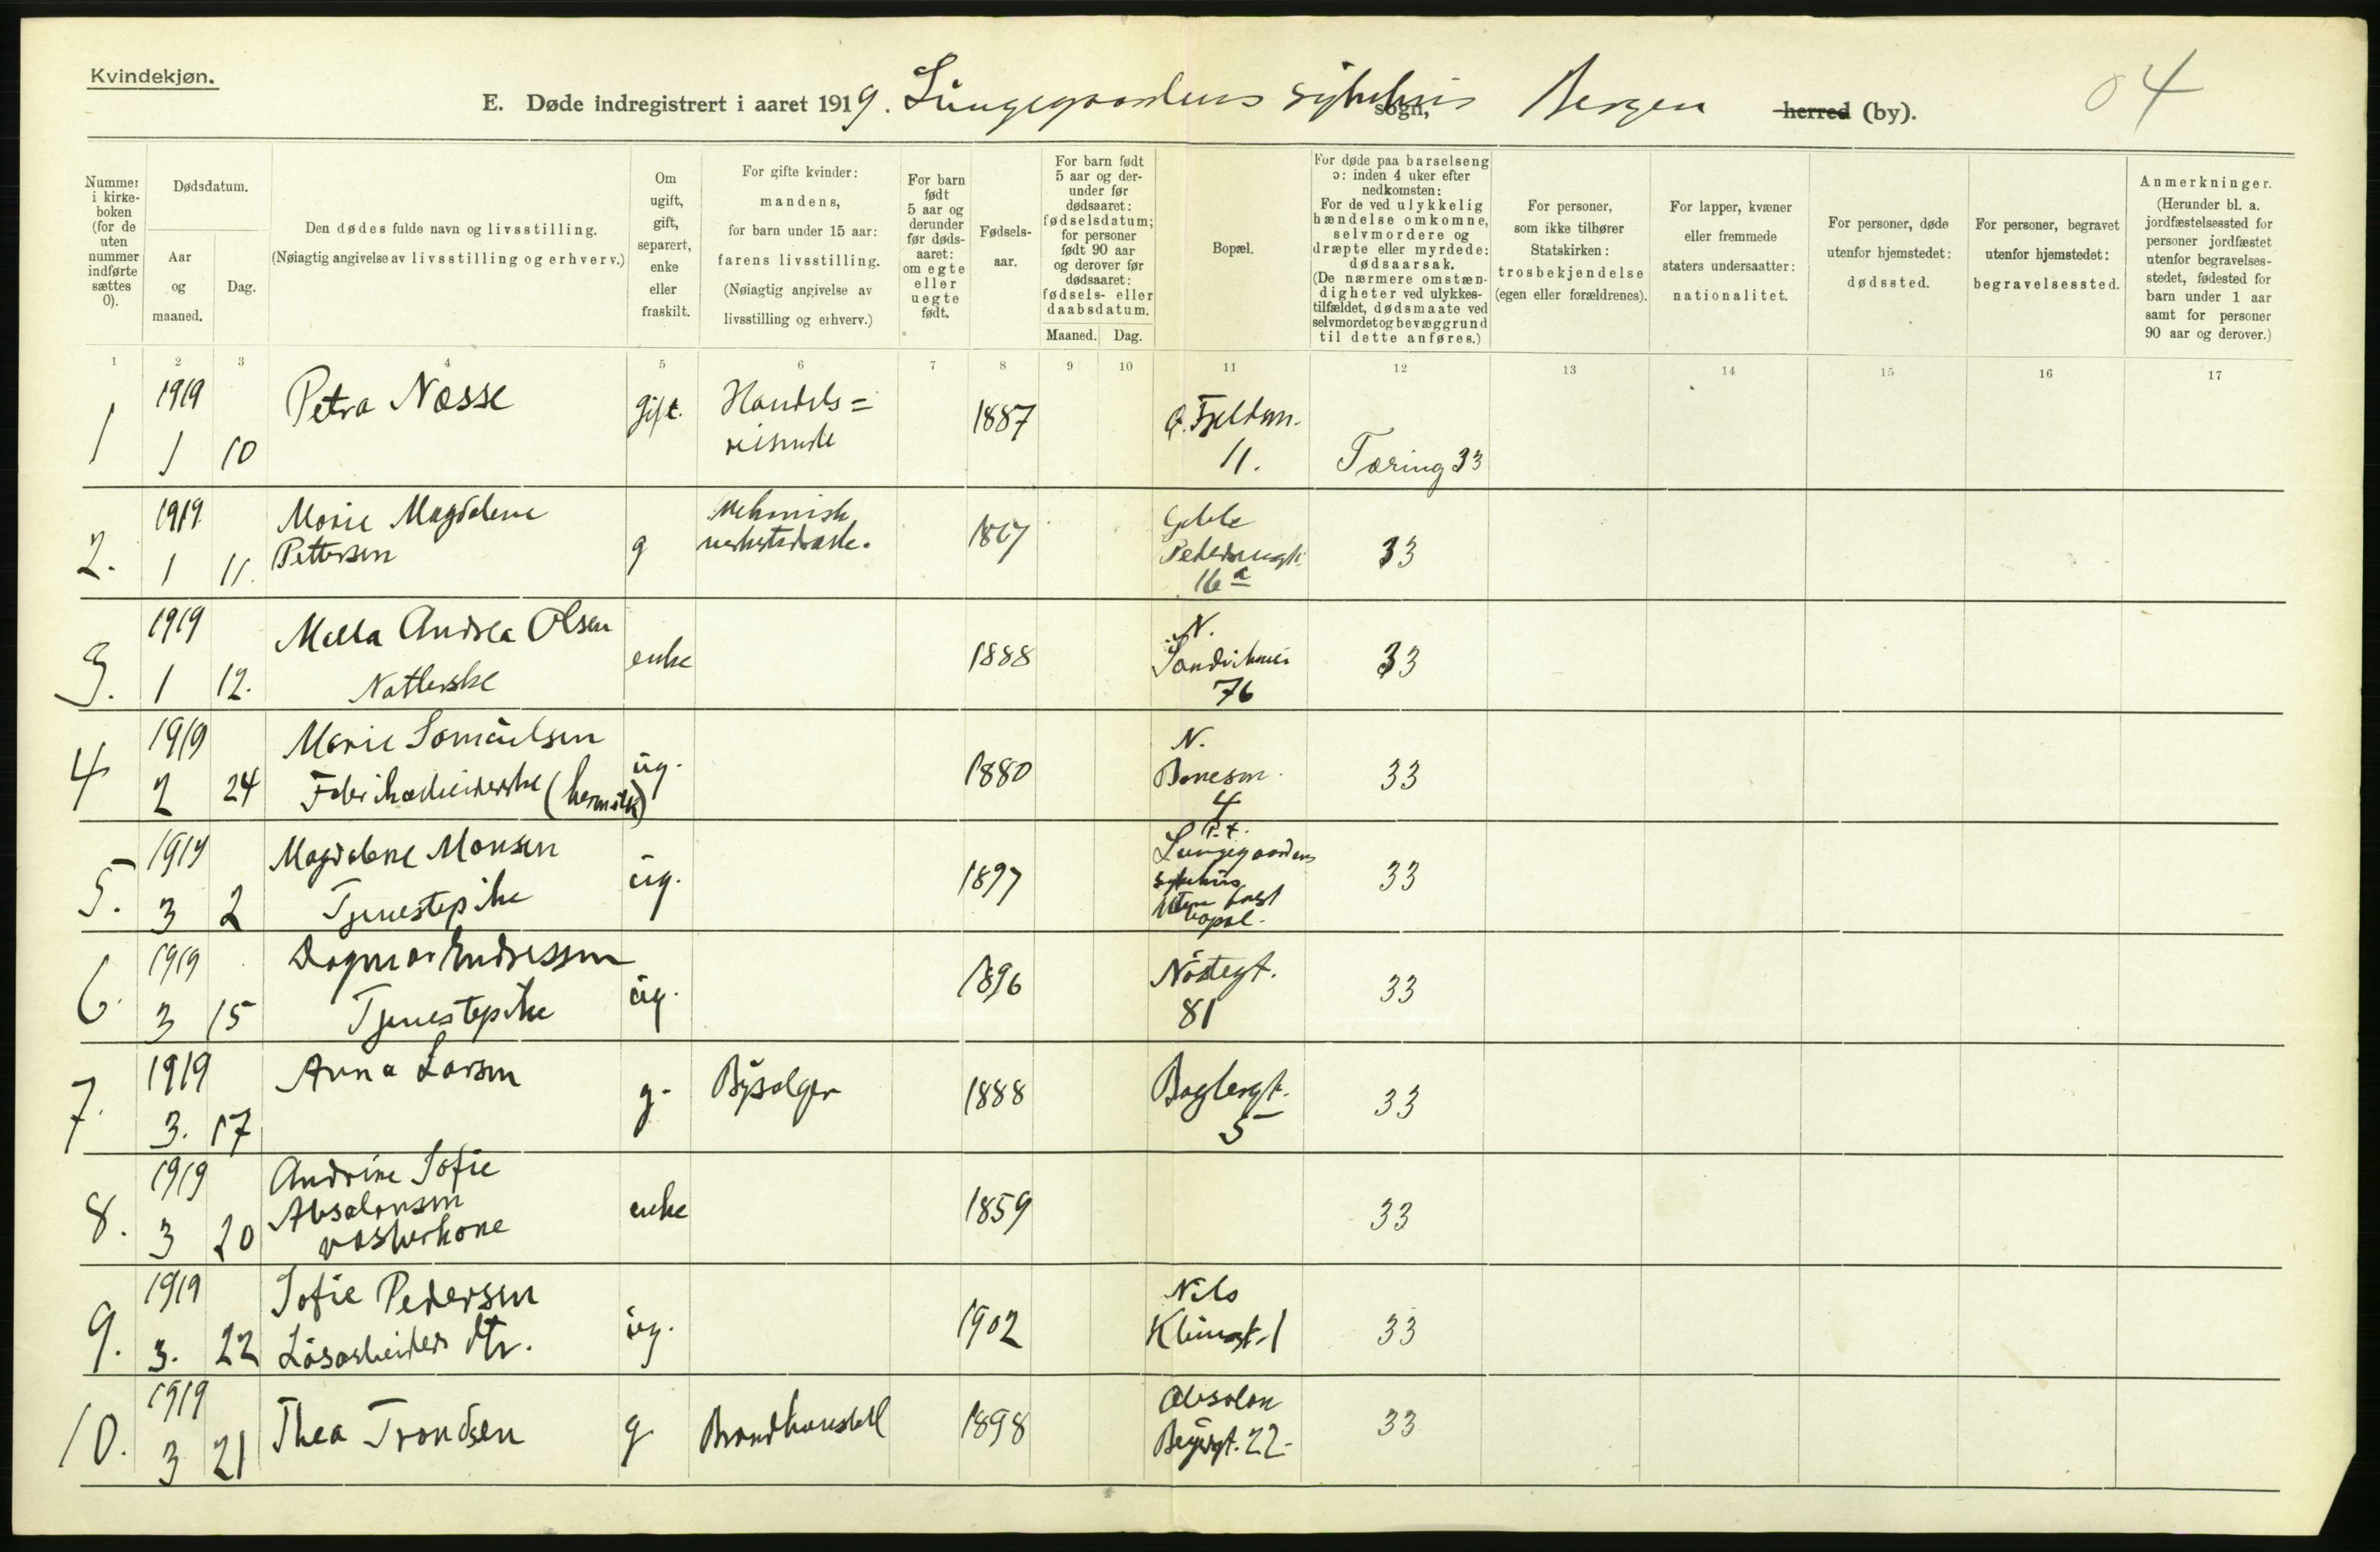 Kvindekjøn.
E. Døde indregistrert i aaret 1919. Lungegaardens sykehus sogn, Bergen herred (by).
04
Nummer i kirkeboken (for de uten nummer indførte sættes 0).
Dødsdatum.
Aar og maaned.
Dag.
Den dødes fulde navn og livsstilling.
(Nøiagtig angivelse av livsstilling og erhverv.)
Om ugift, gift, separert, enke eller fraskilt.
For gifte kvinder: mandens, for barn under 15 aar: farens livsstilling. (Nøiagtig angivelse av livsstilling og erhverv.)
For barn født 5 aar og derunder før dødsaaret: om egte eller uegte født.
Fødselsaar.
For barn født 5 aar og derunder før dødsaaret: fødselsdatum; for personer født 90 aar og derover før dødsaaret: fødsels- eller daabsdatum.
Maaned. Dag.
Bopæl.
For døde paa barselseng ɔ: inden 4 uker efter nedkomsten: For de ved ulykkelig hændelse omkomne, selvmordere og dræpte eller myrdede: dødsaarsak. (De nærmere omstændigheter ved ulykkestilfældet, dødsmaate ved selvmordet og bevæggrund til dette anføres.)
For personer, som ikke tilhører Statskirken: trosbekjendelse (egen eller forældrenes).
For lapper, kvæner eller fremmede staters undersaatter: nationalitet.
For personer, døde utenfor hjemstedet: dødssted.
For personer, begravet utenfor hjemstedet: begravelsessted.
Anmerkninger. (Herunder bl. a. jordfæstelsessted for personer jordfæstet utenfor begravelsesstedet, fødested for barn under 1 aar samt for personer 90 aar og derover.)
1 2 3 4 5 6 7 8 9 10 11 12 13 14 15 16 17
1 1919 1 10 Petra Næsse gift. Handels=reisende 1887 Ø. Fjeldsm. 11. Tæring 33
2. 1919 1 11. Marie Magdalene Pettersen g Mekanisk 1867 Geble Pedersensgt. 16 a 33
3. 1919 1 12. Malla Andrea Olsen Natterske enke 1888 N. Sandviksvei 76 33
4 1919 2 24 Marie Samuelsen Fabrikarbeiderske (hermetik) ug. 1880 N. 4 33
5. 1919 3 2 Magdalene Monsen Tjenestepike ug. 1897 P.t. Lungegaardens sykehus Uten fast bopæl. 33
6. 1919 3 15 Dagmar Endresen Tjenestepike ug. 1896 Nøstegt. 81 33
7. 1919 3. 17 Anna Larsen g. Bysælger 1888 5 33
8. 1919 3 20 Andrine Sofie Absalonsen vaskerkone enke 1859 33
9. 1919 3. 22 Sofie Pedersen Løsarbeiders dtr. ug. 1902 Nils Klimsgt. 1 33
10. 1919 3 21 Thea Trondsen g Brandkonstabel 1898 Absalon Beyersgt. 22 33